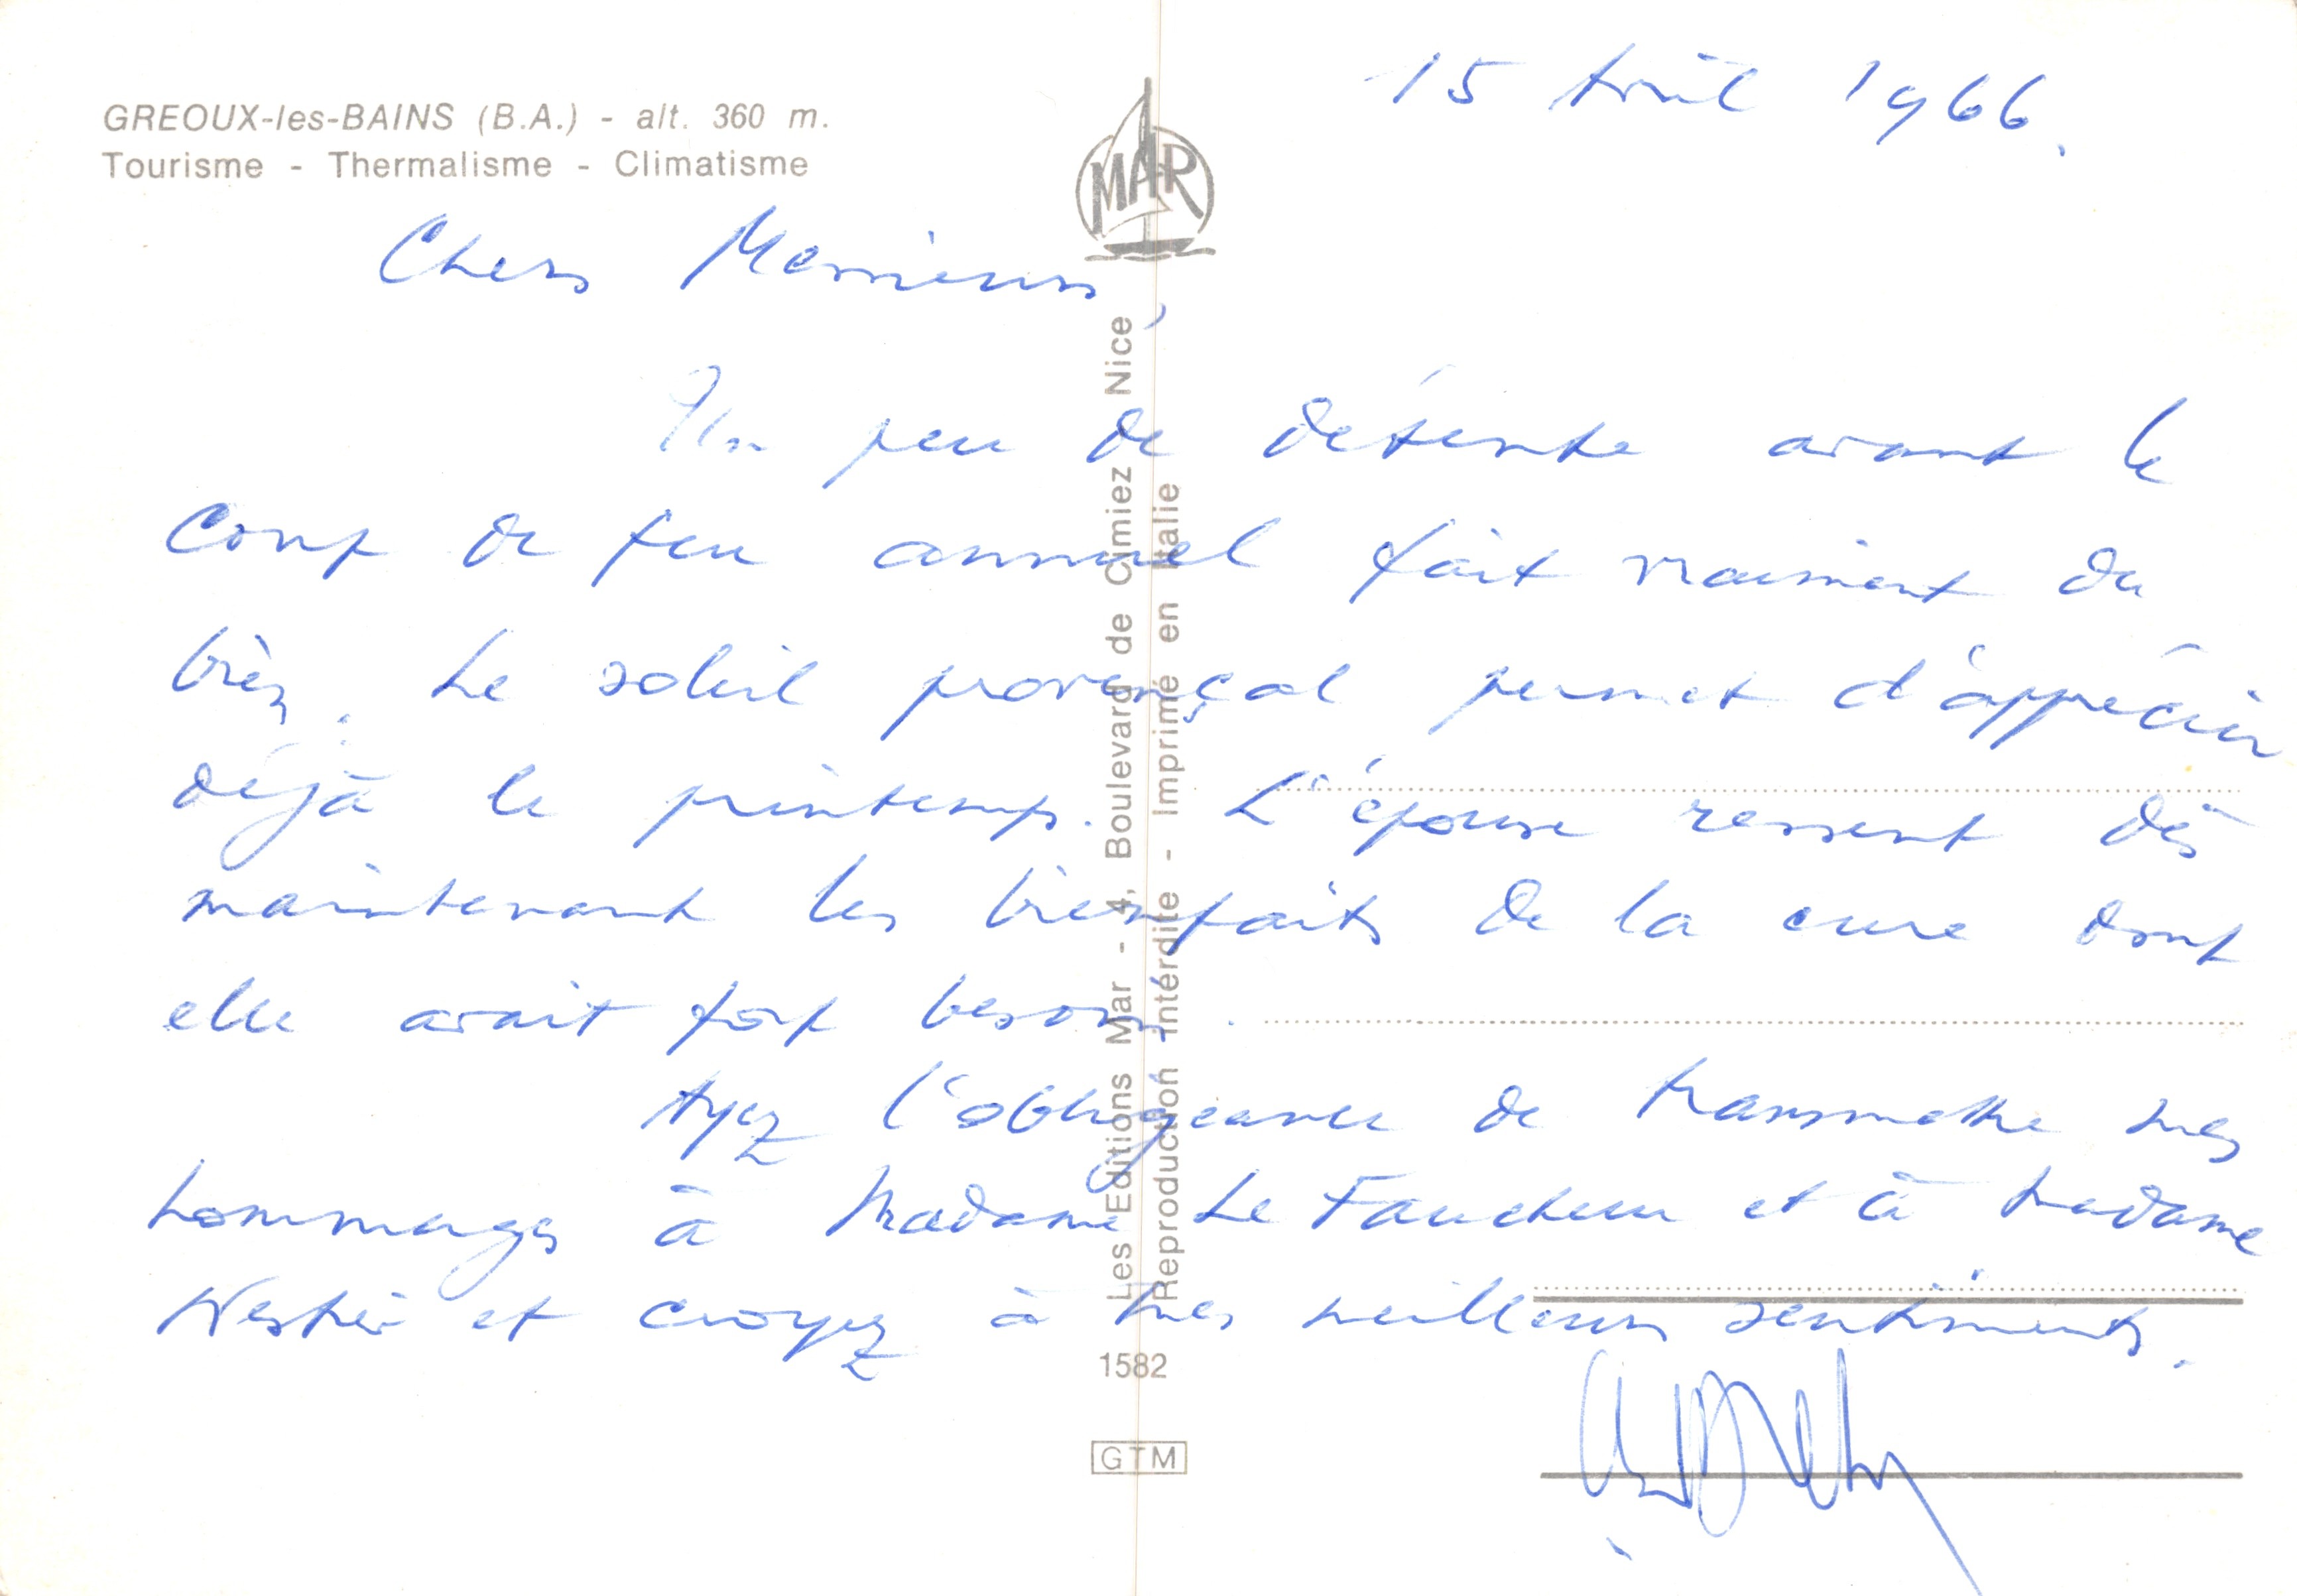 GREOUX-les-BAINS (B.A.) - alt. 360 m.
Tourisme - Thermalisme - Climatisme
15 Avril 1966.
MAR
Chers Messieurs,
Un peu de détente avant le
coup de feu annuel fait vraiment du
bien. Le soleil provençal permet d'apprécier
déjà le printemps. L'épouse ressent dès
maintenant les bienfaits de la cure dont
elle avait fort besoin.
Ayez l'obligeance de transmettre mes
hommages à Madame Le Faucheur et à Madame
et croyez à mes meilleurs sentiments.
Les Editions Mar - 4, Boulevard de Cimiez Nice
Reproduction intérdite - Imprimé en Italie
1582
GTM